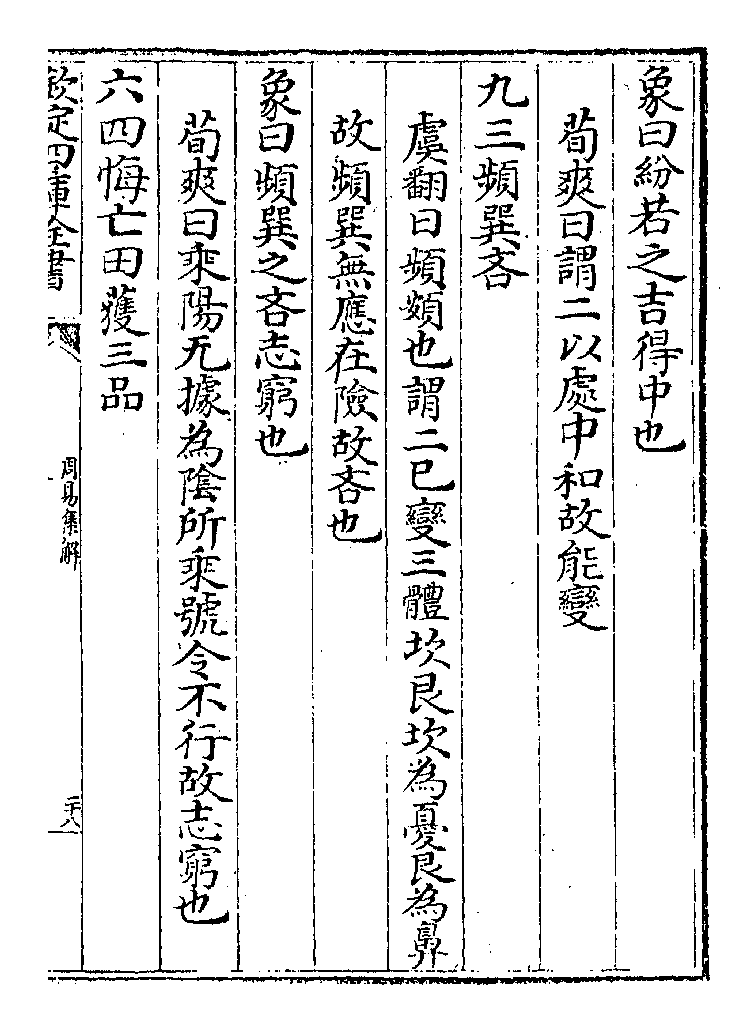 象曰紛若之吉得中也
荀爽曰謂二以處中和故能變
九三頻巽吝
虞翻曰頻頞也謂二已變三體坎艮坎為憂艮為鼻
故頻巽無應在險故吝也
象曰頻巽之吝志窮也
荀爽曰乘陽无據為陰所乘號令不行故志窮也
六四悔亡田獲三品
欽定四庫全書
周易集解
二十八